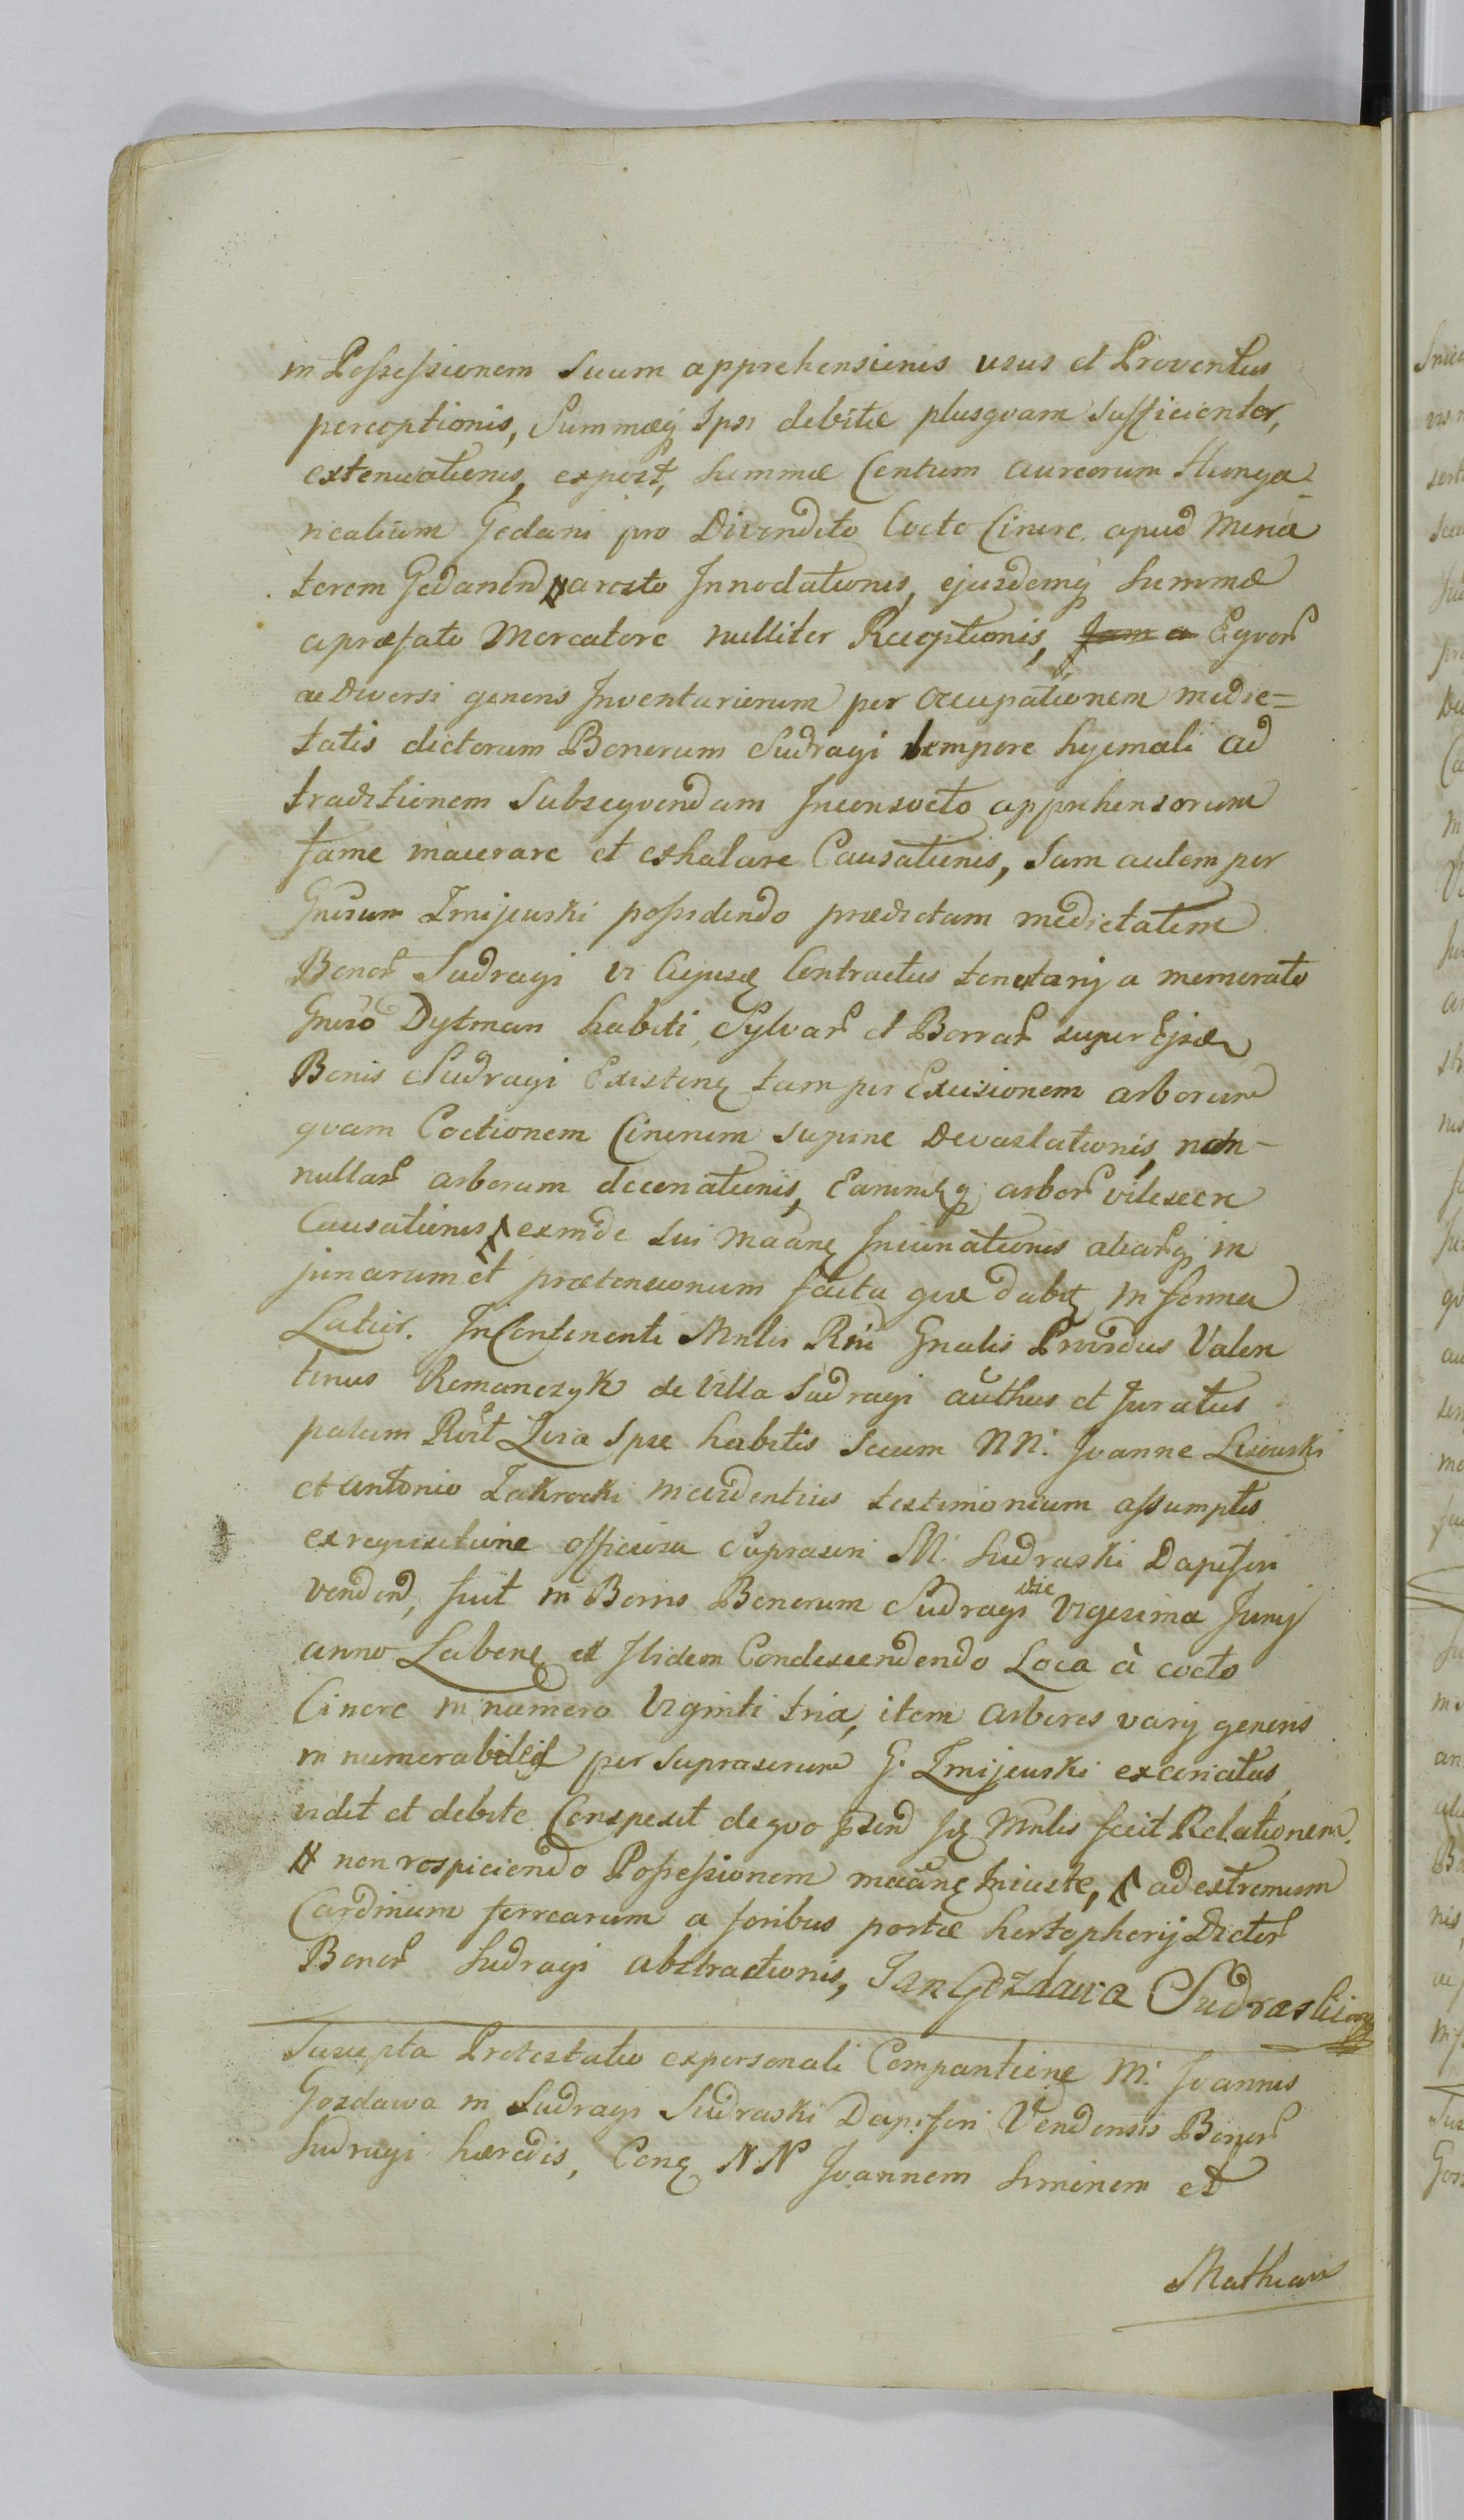 in Possessionem Suam apprehensionis usus et Proventus
perceptionis, Summæq Ipsi debitæ plusqvam Sufficienter,
extenuationis, expost, Summæ Centum aureorum Hunga-
ricalium Gedani pro Divendito Cocto Cinere, apud Merca
torem Gedanen aresto Innodationis, ejusdemq Summæ
a præfato Mercatore nulliter Receptionis, Eqvor
ac Diversi generis Inventariorum per occupationem medie=
tatis dictorum Bonorum Sudragi tempore hyemali ad
traditionem Subseqvendam Inconsveto apprehensorum
fame macerare et exhalare Causationis, Jam autem per
Gnrosum Zmijewski possidendo prædictam medietatem
Bonor Sudragi vi Cujusq Contractus tenutarij a memorato
Gnroso Dytman habiti, Sylvar et Borrar super Ejsdem
Bonis Sudragi Existenq tam per Excisionem arborum
qvam Coctionem Cinerum supine Devastationis, non-
nullar arborum decoriationis, Earumq arbor vilescere
Causationis, exinde Sui maanq Inruinationis aliarq in
juriarum et prætensionum facta qvæ dabit in forma
Latior. In Continenti Mnlis Rni Gnalis Providus Valen
tinus Romanczyk de Villa Sudragi authus et Juratus
palam Rvit Qvia Ipse habitis Secum NN. Joanne Lisowski
et Antonio Zakrocki in evidentius testimonium assumptis
ex reqvisitione officiosa Suprascri M. Sudraski Dapiferi
Venden, fuit in Bonis Bonorum Sudragi die Vigesima Junij
anno Labenq et Ibidem Condescendendo Loca à cocto
Cinere in numero Viginti tria, item arbores varij generis
in numerabiles per Suprascrum G. Zmijewski excoriatas,
vidit et debite Conspexit de qvo præsen Mnlis fecit Relationem.
non respiciendo Possessionem maanq Iniuste, ad extremum
Cardinum ferrearum a foribus portæ hortophorij Dictor
Bonor Sudragi abstractionis, Jan Gozdawa Sudraski
Suscepta Protestatio ex personali Comparitione M. Joannis
Gozdawa in Sudragi Sudraski Dapiferi Vendensis Bonor
Sudragi hæredis, Conq NN Joannem Simonem et
Mathiam